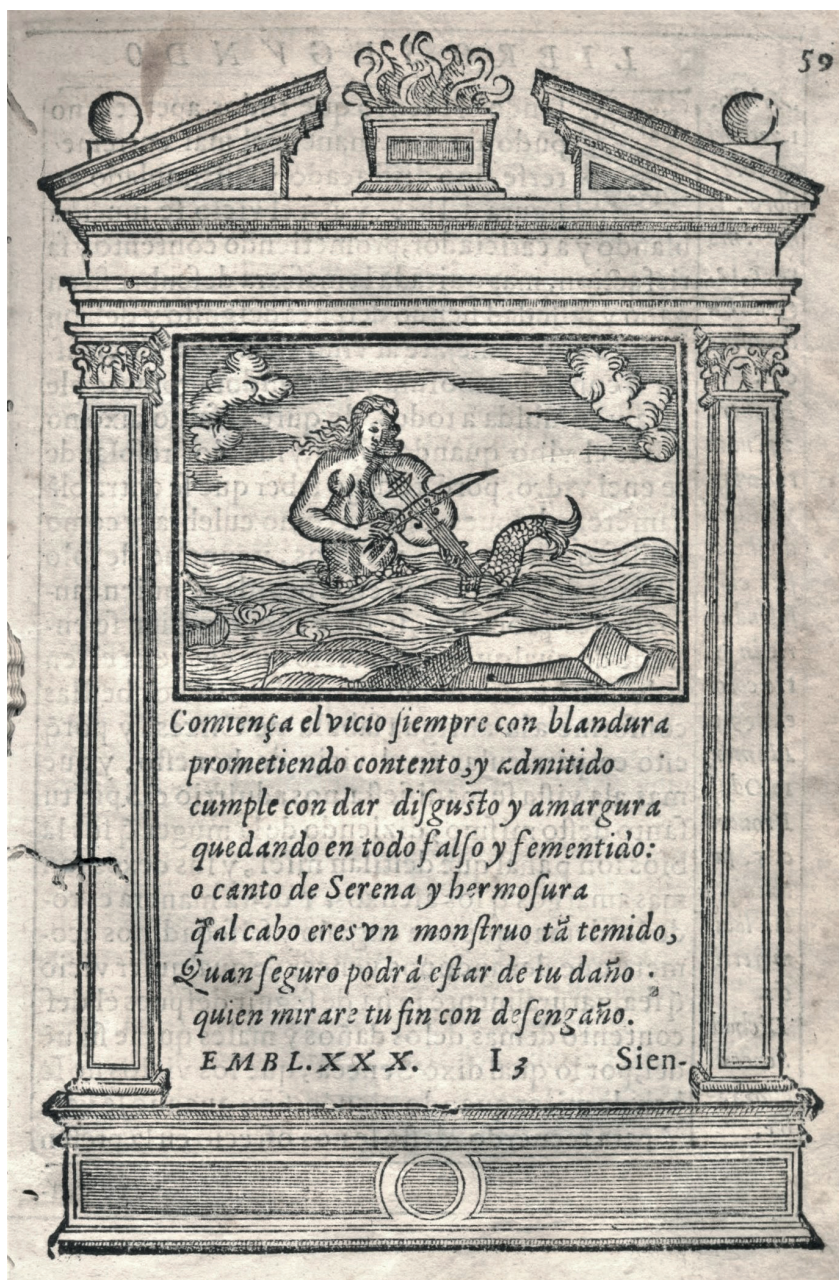 59
Comiença el vicio ſiempre con blandura
prometiendo contento, y admitido
cumple con dar diſguſto y amargura
quedando en todo falſo y fementido:
o canto de Serena y hermoſura
q̃ al cabo eres vn monſtruo tã temido,
Quan ſeguro podrá eſtar de tu daño
quien mirare tu fin con deſengaño.
EMBL. XXX. I 3 Sien-